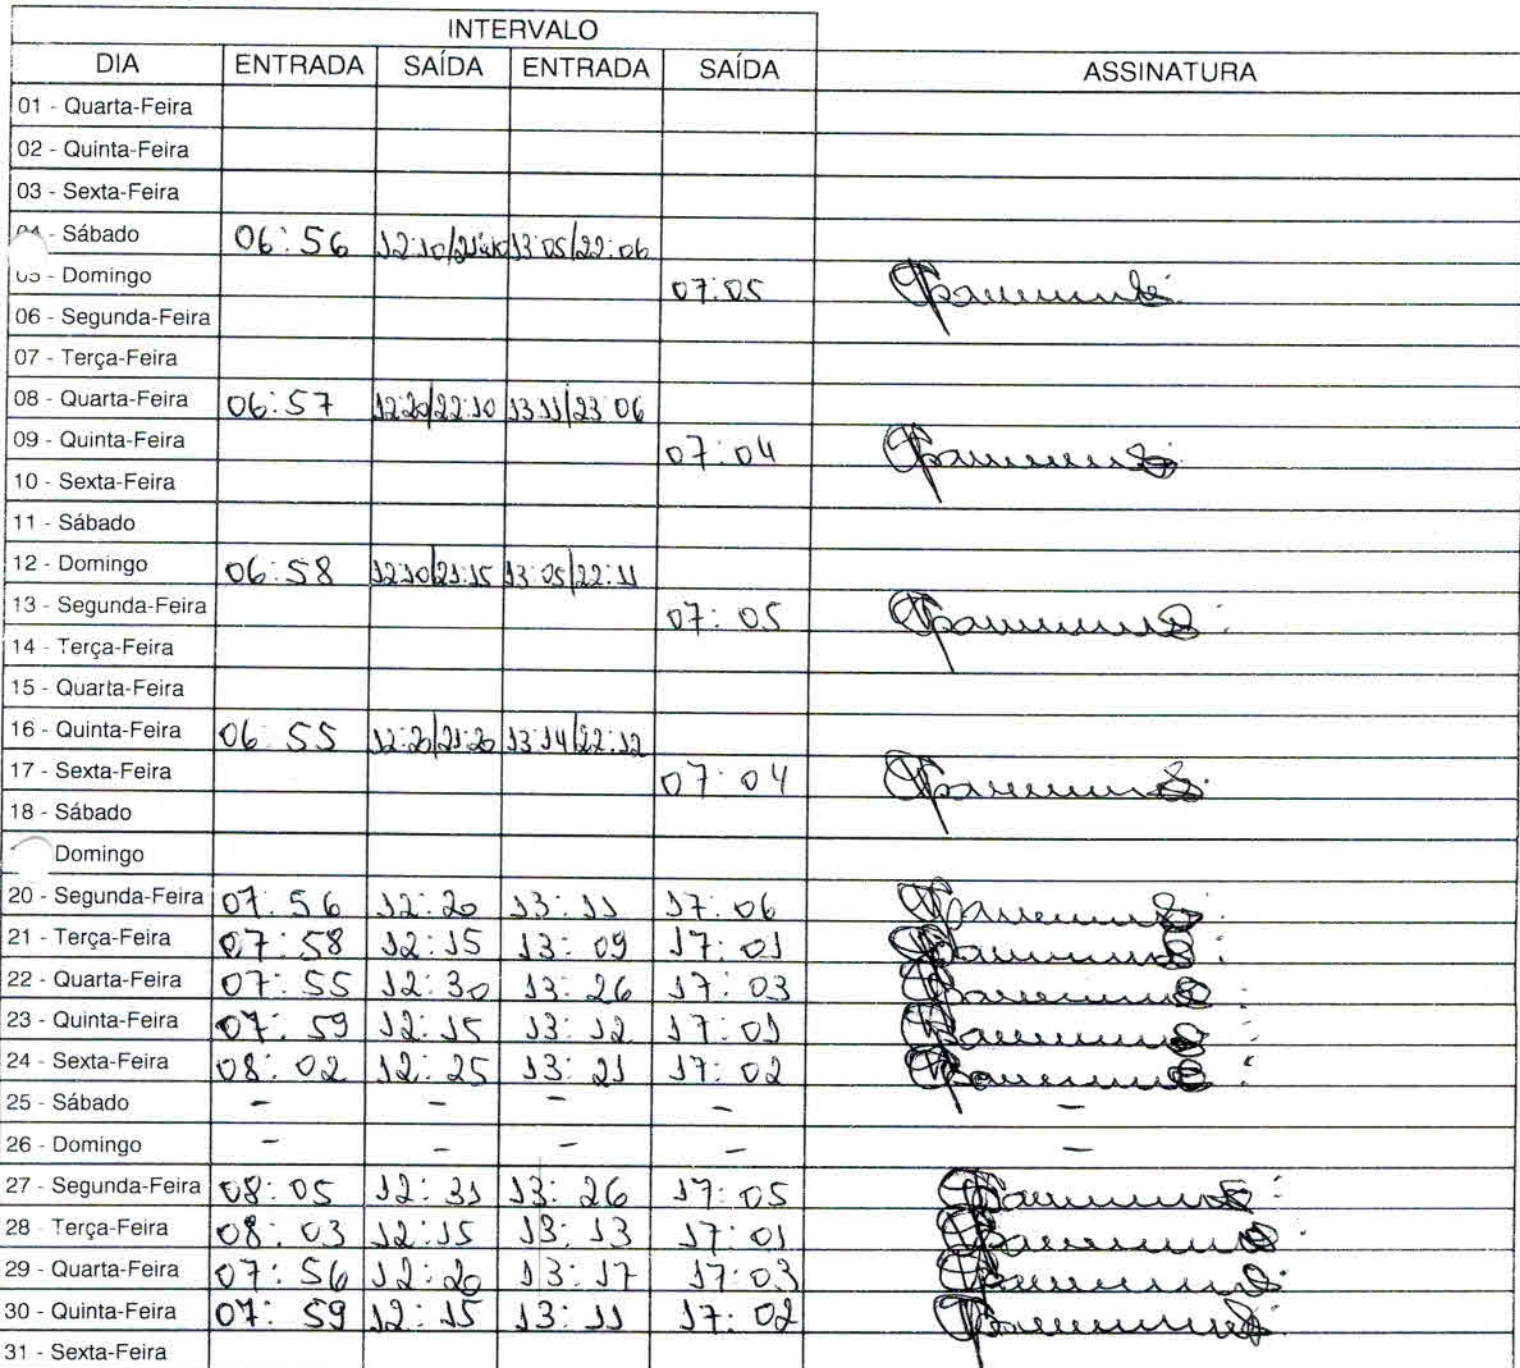 INTERVALO
DIA ENTRADA SAÍDA ENTRADA SAÍDA ASSINATURA
01 - Quarta-Feira
02 - Quinta-Feira
03 - Sexta-Feira
04 - Sábado 06:56 12:10/21:10 13:05/22:06
05 - Domingo 07:05
06 - Segunda-Feira
07 - Terça-Feira
08 - Quarta-Feira 06:57 12:20/22:10 13:11/23:06
09 - Quinta-Feira 07:04
10 - Sexta-Feira
11 - Sábado
12 - Domingo 06:58 12:10/21:15 13:05/22:11
13 - Segunda-Feira 07:05
14 - Terça-Feira
15 - Quarta-Feira
16 - Quinta-Feira 06:55 12:20/21:20 13:14/22:12
17 - Sexta-Feira 07:04
18 - Sábado
Domingo
20 - Segunda-Feira 07:56 12:20 13:11 17:06
21 - Terça-Feira 07:58 12:15 13:09 17:01
22 - Quarta-Feira 07:55 12:30 13:26 17:03
23 - Quinta-Feira 07:59 12:15 13:12 17:01
24 - Sexta-Feira 08:02 12:25 13:21 17:02
25 - Sábado - - - - -
26 - Domingo - - - - -
27 - Segunda-Feira 08:05 12:31 13:26 17:05
28 - Terça-Feira 08:03 12:15 13:13 17:01
29 - Quarta-Feira 07:56 12:20 13:17 17:03
30 - Quinta-Feira 07:59 12:15 13:11 17:02
31 - Sexta-Feira